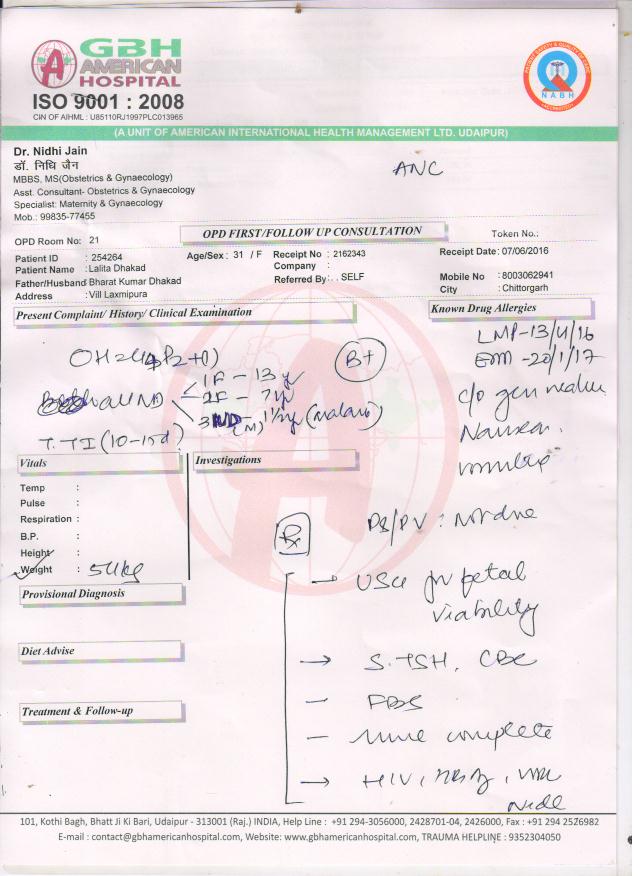 GBH
AMERICAN
HOSPITAL
ISO 9001 : 2008
CIN OF AIHML : U85110RJ1997PLC013965
NABH
(A UNIT OF AMERICAN INTERNATIONAL HEALTH MANAGEMENT LTD. UDAIPUR)
Dr. Nidhi Jain
डॉ. निधि जैन
MBBS, MS(Obstetrics & Gynaecology)
Asst. Consultant- Obstetrics & Gynaecology
Specialist: Maternity & Gynaecology
Mob.: 99835-77455
ANC
OPD Room No: 21
OPD FIRST/FOLLOW UP CONSULTATION
Token No.:
Patient ID : 254264
Age/Sex : 31 / F
Receipt No : 2162343
Receipt Date: 07/06/2016
Patient Name : Lalita Dhakad
Company :
Father/Husband Bharat Kumar Dhakad
Referred By: . . SELF
Mobile No : 8003062941
Address : Vill Laxmipura
City : Chittorgarh
Present Complaint/ History/ Clinical Examination
Known Drug Allergies
LMP-13/4/16
-20/1/17
B+
1F - 13 y
2F - 7 y
3 (M) 1½ y
T.TI (10-15d)
c/o gen
Nausea
Vitals
Investigations
Temp :
Pulse :
Respiration :
B.P. :
Height :
Weight : 54kg
PS/PV : Not done
Rx
→ USG for fetal
viability
Provisional Diagnosis
Diet Advise
→ S.TSH, CBC
- FBS
Treatment & Follow-up
- urine complete
→ HIV,
101, Kothi Bagh, Bhatt Ji Ki Bari, Udaipur - 313001 (Raj.) INDIA, Help Line : +91 294-3056000, 2428701-04, 2426000, Fax : +91 294 2526982
E-mail : contact@gbhamericanhospital.com, Website: www.gbhamericanhospital.com, TRAUMA HELPLINE : 9352304050